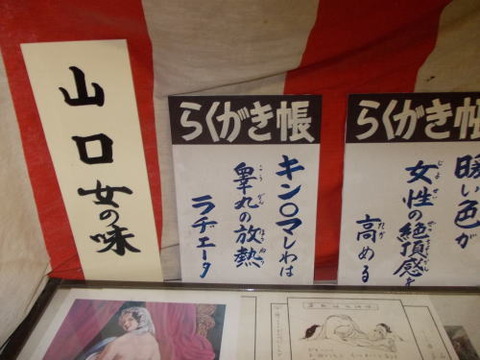 山口女の味
らくがき帳
キン〇マしわは
睾丸の放熱
ラヂエータ
らくがき帳
暖い色が
女性の絶頂感を
高める